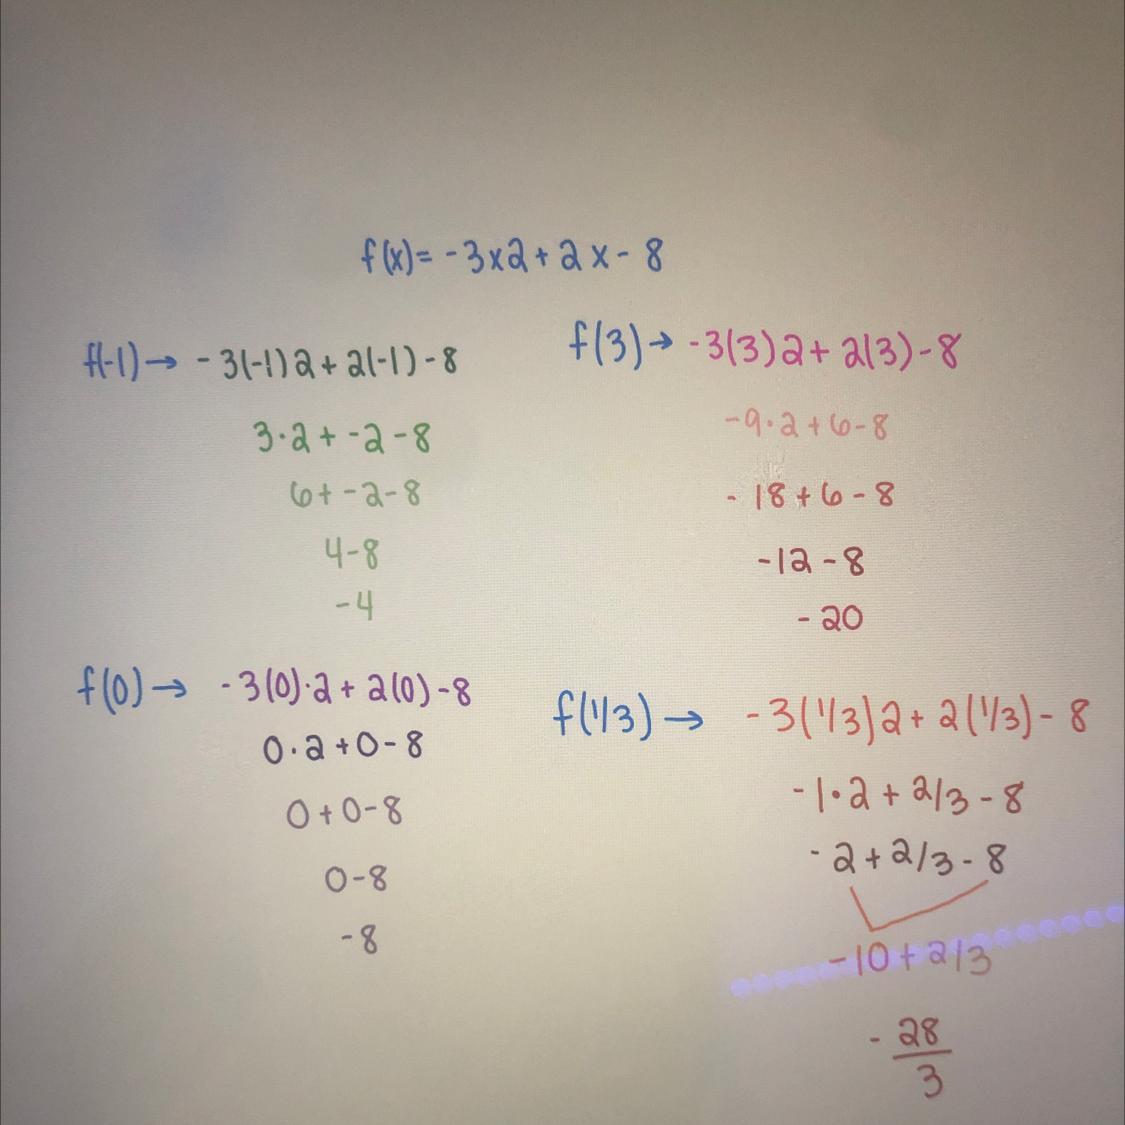 f(x)= -3x2+2x-8
f(-1)→ -3(-1)2+2(-1)-8
3·2+-2-8
6+-2-8
4-8
-4
f(3)→ -3(3)2+2(3)-8
-9·2+6-8
-18+6-8
-12-8
-20
f(0)→ -3(0)·2+2(0)-8
0·2+0-8
0+0-8
0-8
-8
f(1/3)→ -3(1/3)2+2(1/3)-8
-1·2+2/3-8
-2+2/3-8
-10+2/3
-28/3